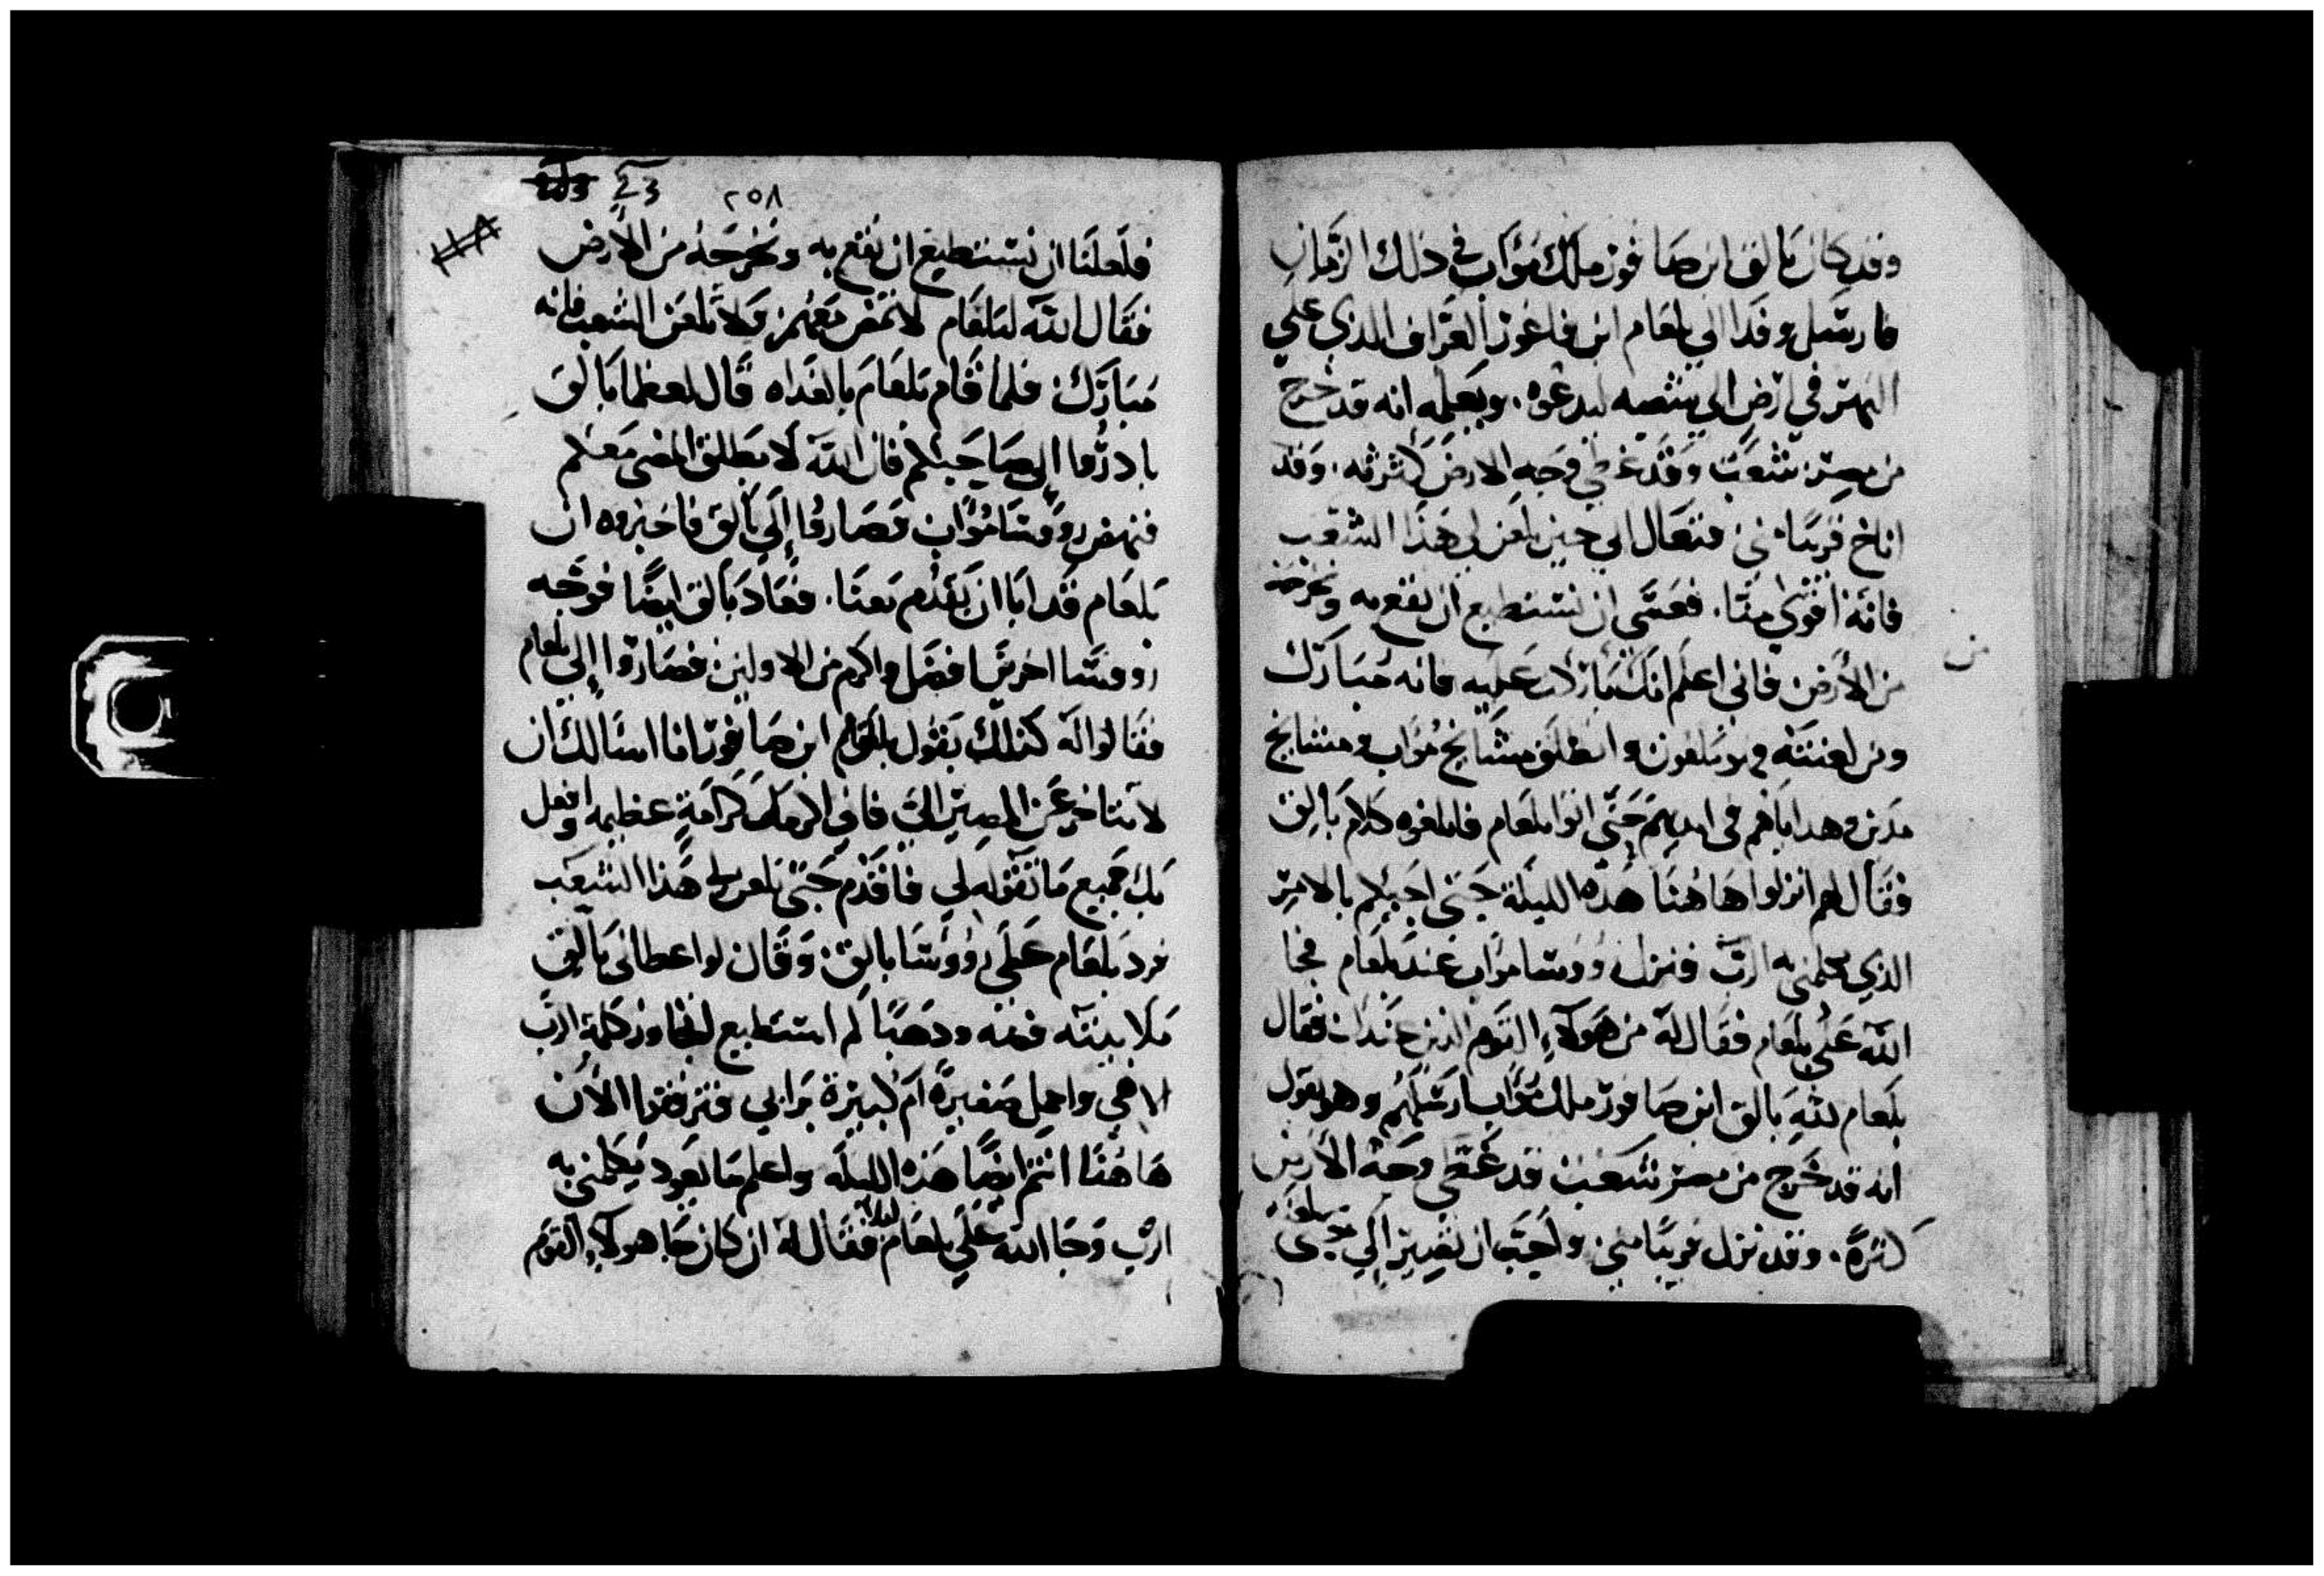 وقد كان بالق ابن صافور ملك مواب في ذلك الزمان
فارسل وفدا الي بلعام ابن فاغور العراف الذي علي
النهر في ارض الي ليدعوه. ويعلمه انه قد خرج
من مصر شعب وقد غطي وجه الارض كثرته. وقد
اناخ قريبا مني فتعال الي حين تلعن لي هذا الشعب
فانه اقوي منا. فعسي ان نستطيع ان نقع به ونخرجه
من الأرض فاني اعلم انك باركت عليه فانه مبارك
ومن لعنته فهو ملعون وانطلق مشايخ مواب ومشايخ
مدين وهداياهم في ايديهم حتي اتوا بلعام فابلغوه كلام بالق
فقال لهم انزلوا هاهنا هذه الليلة حتي اجيبكم بالامر
الذي يكلمني به الرب فنزل رووسا مواب عند بلعام فجا
الله علي بلعام فقال له من هولاء القوم الذين عندك فقال
بلعام لله بالق ابن صافور ملك مواب ارسلهم وهو يقول
انه قد خرج من مصر شعب قد غطي وجه الأرض
كثرة. وقد نزل قريبا مني. واحب ان تصير الي حتي تلعنه
٢٥٨
203 223
فلعلنا ان نستطيع ان نقع به ونخرجه من الأرض
فقال الله لبلعام لا تمض معهم ولا تلعن الشعب فانه
مبارك فلما قام بلعام بالغداه قال لعظما بالق
بادروا الي صاحبكم فان الله لا يطلق المضي معكم
فنهض رووسا مواب فصاروا إلي بالق فاخبروه ان
بلعام قد ابا ان يقدم معنا. فعاد بالق ايضا فوجه
رووسا اخر افضل واكرم من الاولين فصاروا إلي بلعام
فقالوا له كذلك يقول بالق ابن صافور انا اسالك ان
لا تتاخر عن المصير الي فاني اكرمك كرامة عظيمه وافعل
بك جميع ما تقوله لي فاقدم حتي تلعن لي هذا الشعب
فرد بلعام علي رووسا بالق وقال لو اعطاني بالق
ملا بيته فضه ودهبا لم استطيع اتجاوز كلمة الرب
الاهي واعمل صغيرة ام كبيرة براي فترفقوا الأن
هاهنا انتم ايضا هذه الليلة واعلم ما يعود يكلمني به
الرب وجا الله علي بلعام ليلا فقال له ان كان جا هولاء القوم